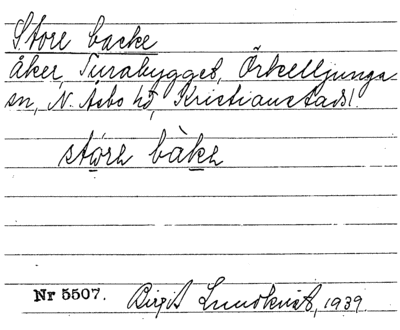 Store backe
åker, Turabygget, Örkelljunga
sn, N. Åsbo hd, Kristianstads l.
störe bàke
Nr 5507. Birgit Lundkvist, 1939.